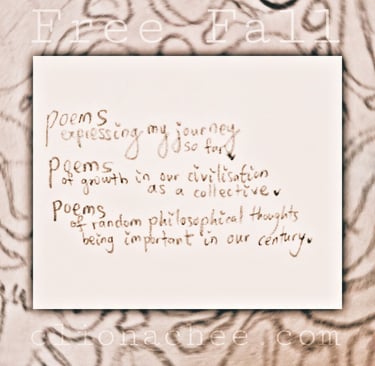 Free Fall
poems
expressing my journey
so far
Poems
of growth in our civilisation
as a collective
Poems
of random philosophical thoughts
being important in our century
clionachee.com